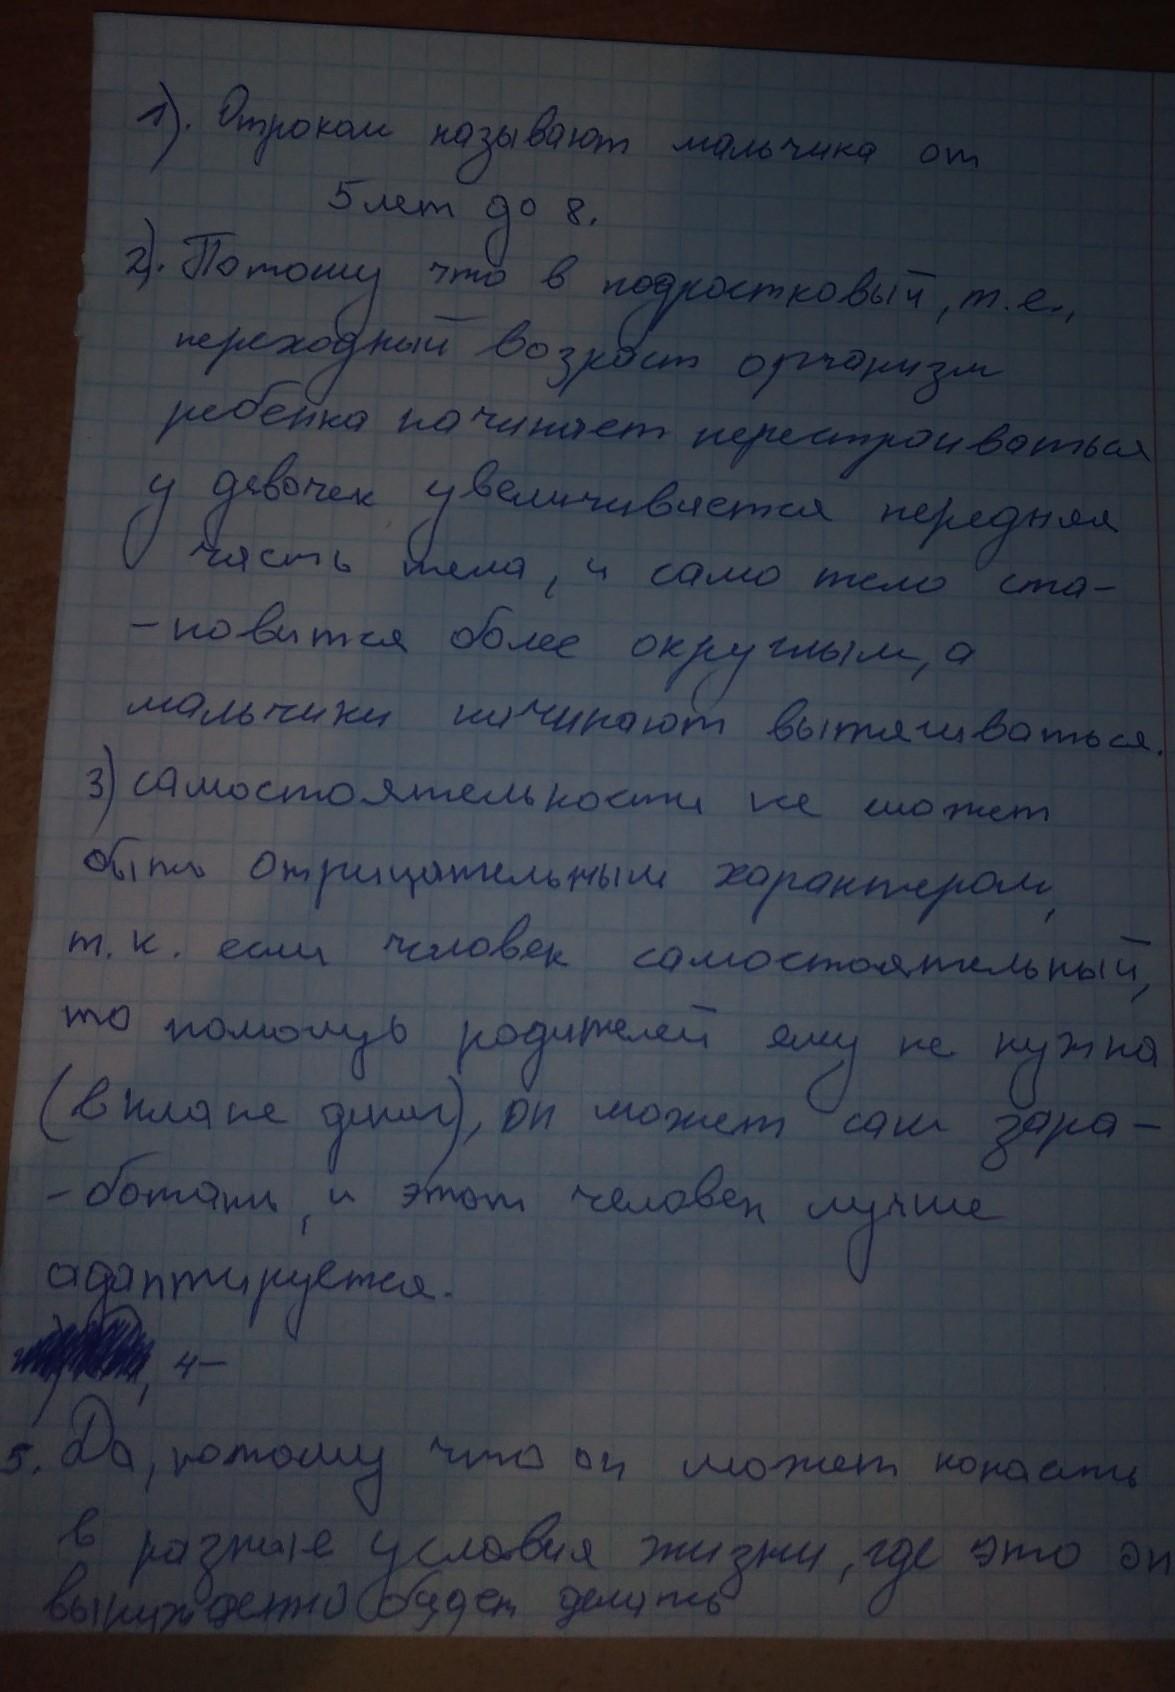 1). Отроком называют мальчика от
5 лет до 8.
2). Потому что в подростковый, т.е.,
переходный возраст организм
ребенка начинает перестраиваться
у девочек увеличивается передняя
часть тела, и само тело ста-
-новится более округлым, а
мальчики начинают вытягиваться.
3) самостоятельности не может
быть отрицательным характером,
т.к. если человек самостоятельный,
то помощь родителей ему не нужна
(в плане денег), он может сам зара-
-ботать, и этот человек лучше
адаптируется.
, 4-
5. Да, потому что он может попасть
в разные условия жизни, где это он
вынужденно будет делать